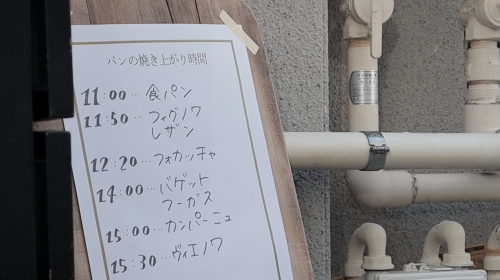 パンの焼き上がり時間
11:00…食パン
11:50…フィグノワ
レザン
12:20…フォカッチャ
14:00…バゲット
フーガス
15:00…カンパーニュ
15:30…ヴィエノワ